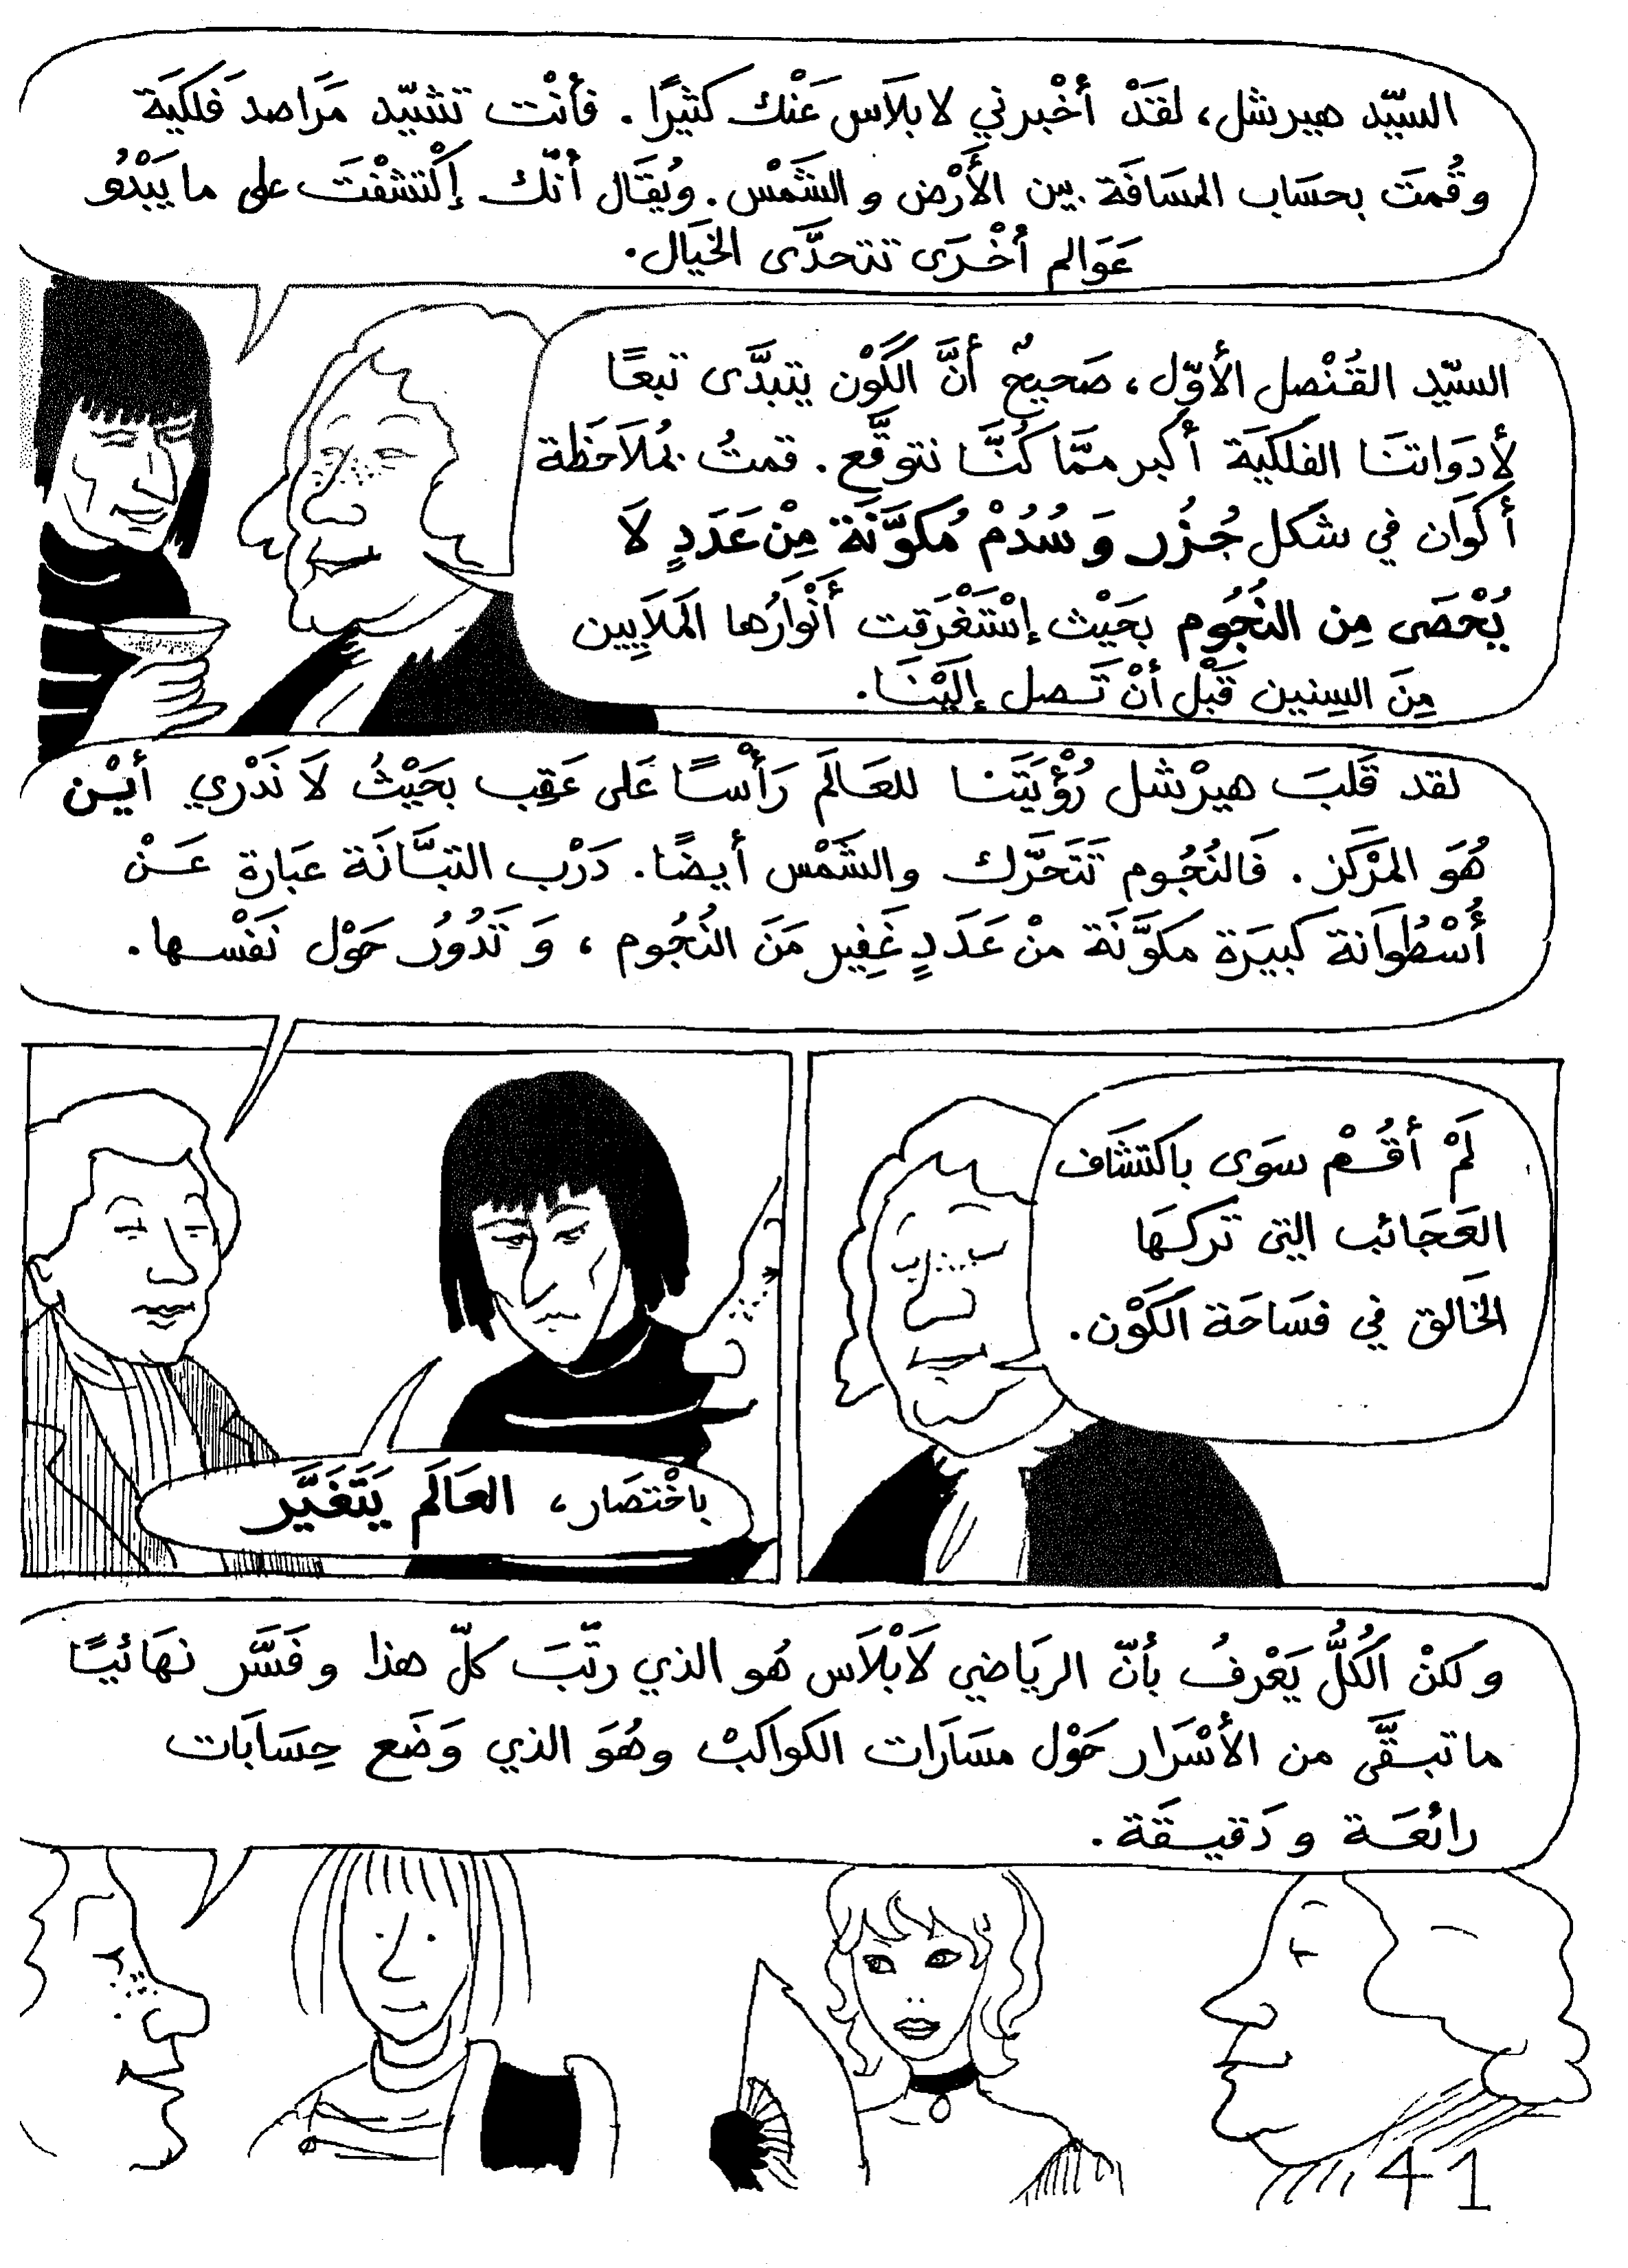 السيّد هيرشل، لقَدْ أخْبرني لابلاَس عَنْك كثيرًا. فأنْت تشيّد مَراصد فَلكيَة
وقُمتَ بحسَاب المسَافَة بين الأَرْض والشَمْس. ويُقَال أنّك إكْتشفْتَ على ما يَبْدُو
عَوَالم أخْرَى تتحدَّى الخيَال.
السيّد القُنْصل الأوّل، صَحيحٌ أنَّ الكَوْن يتبدَّى تبعًا
لأدوَاتنَا الفلكيَة أكبر ممَّا كُنَّا نتوقَّع. قمتُ بمُلاَحَظة
أكوَان في شكل جُزُر وَ سُدُمْ مُكوَّنَة مِنْ عَدَدٍ لاَ
يُحْصَى مِن النُجُوم بحَيْث إسْتَغْرَقت أَنْوَارُها المَلاَيِين
مِنَ السِنين قَبْل أنْ تَصل إليْنَا.
لقد قَلبَ هيرْشل رُؤْيَتَنا للعَالَم رَأْسًا عَلى عَقِب بحَيْثُ لاَ نَدْري أيْن
هُوَ المرْكَز. فَالنُجُوم تَتَحَرّك والشَمْس أيضًا. دَرْب التبَّانَة عبَارة عَنْ
أُسْطُوَانة كبيَرة مكوَّنَة منْ عَدَدٍ غَفِير مَنَ النُجُوم، وَ تَدُورُ حَوْل نَفْسها.
لَمْ أقُمْ سوَى باكتشَاف
العَجَائب التي تَركهَا
الخَالق في فسَاحَة الكَوْن.
باخْتصَار، العَالَم يَتَغَيَّر
ولكنْ الكُلُّ يَعْرفُ بأنّ الريَاضي لاَبْلاَس هُو الذي رتّبَ كلّ هذا وفَسَّر نهَائيًا
ما تبقَّى من الأسْرَار حَوْل مسَارَات الكواكبْ وهُوَ الذي وَضَع حِسَابَات
رائعَة ودَقيقَة.
41